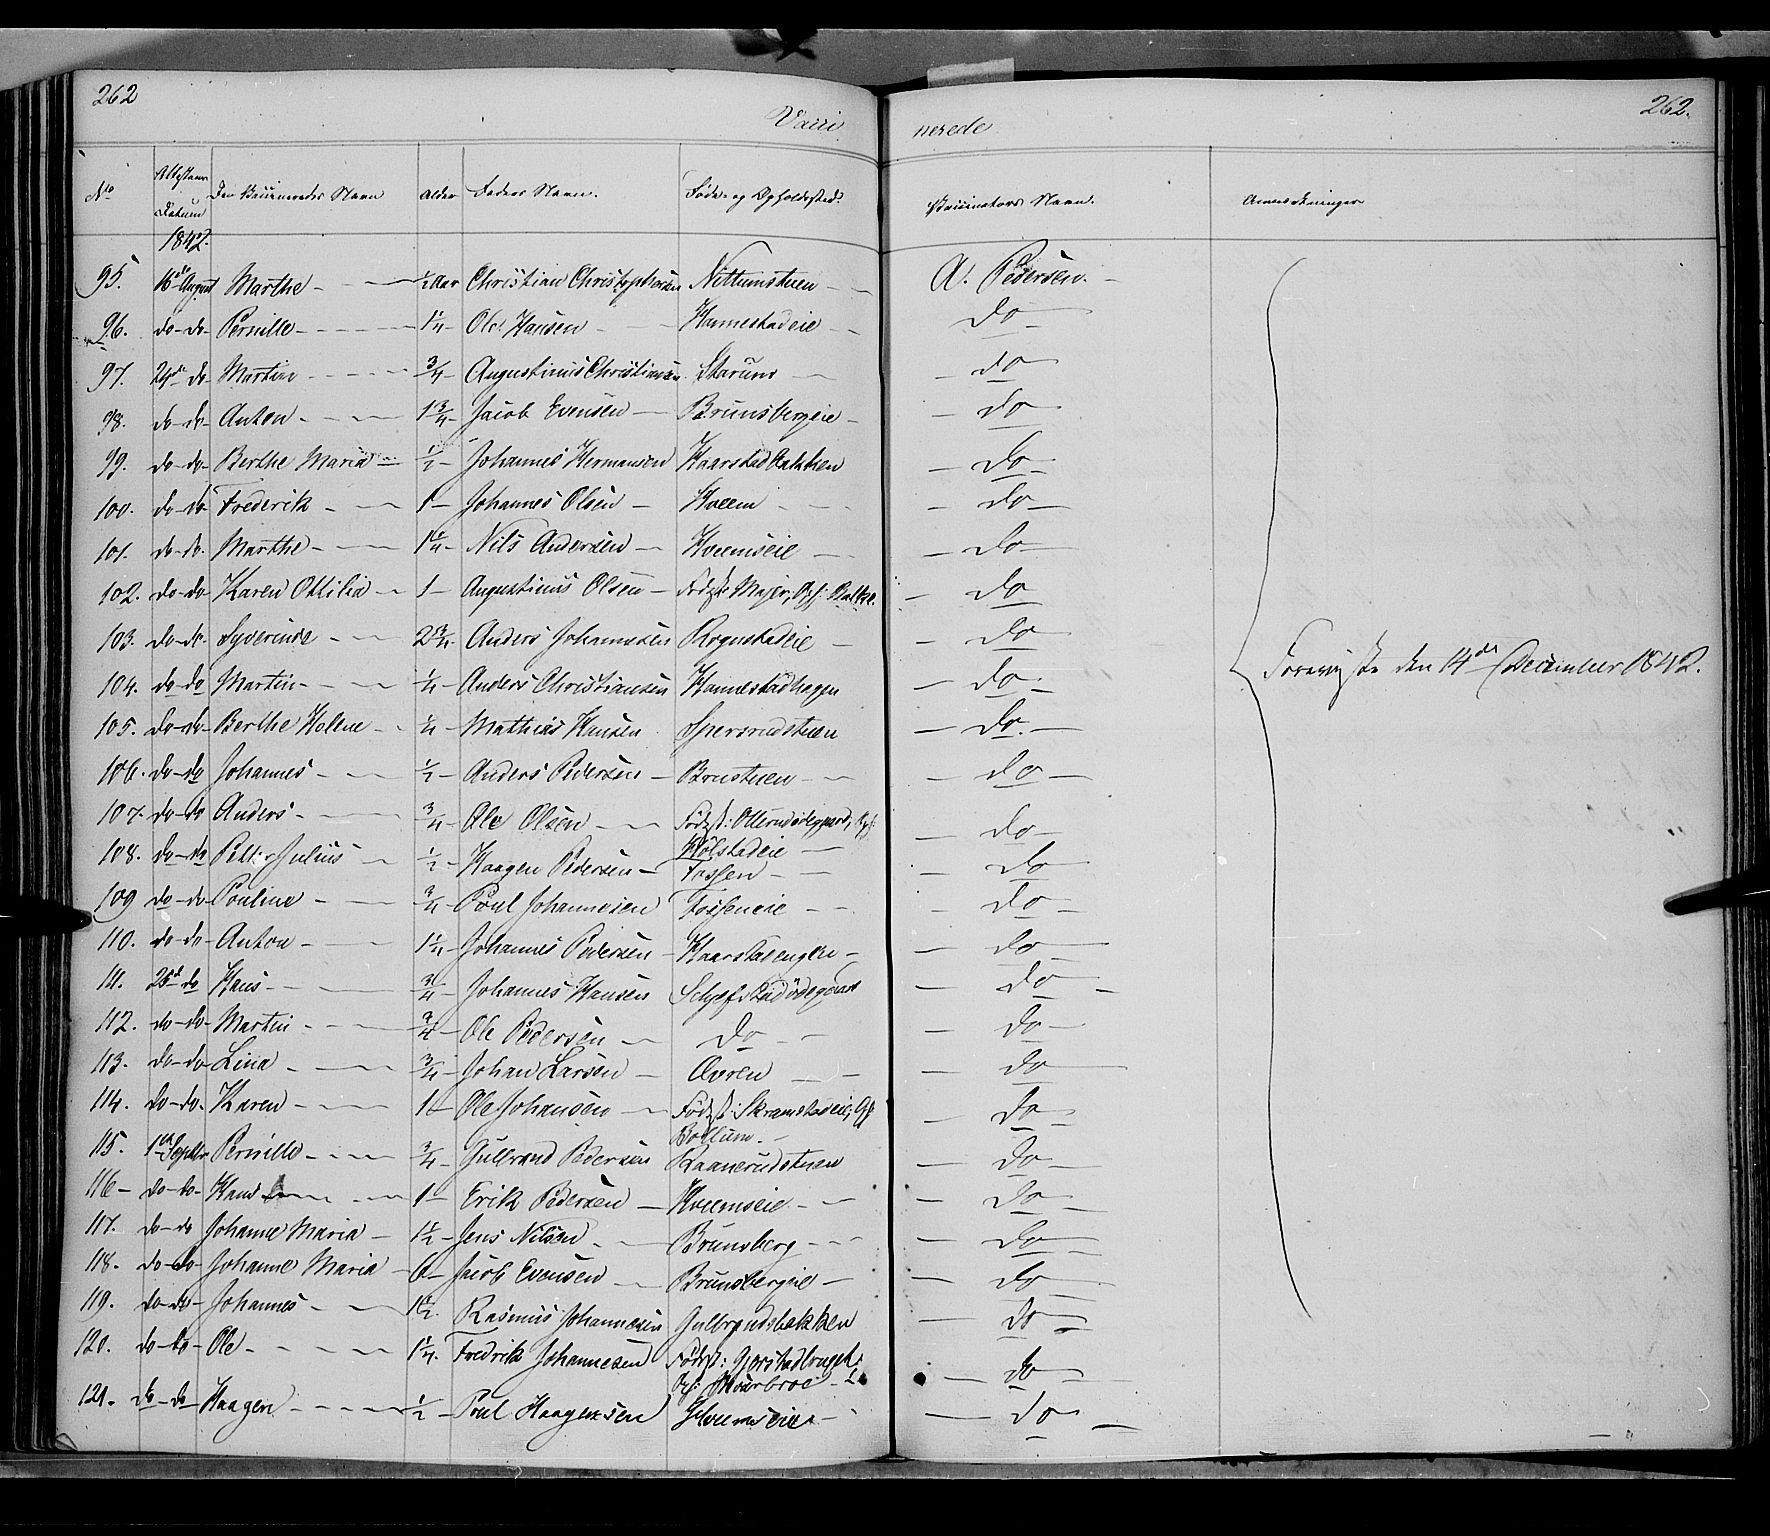 262
Vacci
nerede
262.
No
Attestens Datum
Den Vaccineredes Navn
Alder
Faders Navn.
Føde- og Opholdssted.
Vaccinators Navn.
Anmærkninger
1842.
95. 16de August Marthe - 1/2 Aar Christian Christophersen Nettumstuen - A. Pedersen.
96. do-do- Pernille - 1 1/4 - Ole Hansen - Hannestadeie - do -
97. 24de do- Martin - 3/4 - Augustinus Christiansen Starum - do -
98. do-do- Anton - 1 3/4 - Jacob Evensen - Brunsbergeie - do -
99. do-do- Berthe Maria - 1/2 - Johannes Hermansen Kaarstadbakken - do -
100. do-do Frederik - 1 - Johannes Olsen - Hveem - do -
101. do-do- Marthe - 1 1/4 - Nils Andersen - Hveemseie - do -
102. do-do- Karen Ottilia - 1 - Augustinus Olsen - Fødest: Majer, Oph: Balke. - do
103. do-do- Syverine - 2 3/4. Anders Johannesen Rognstadeie - do -
104. do-do Martin - 1/4 - Anders Christiansen Hannestadhagen - do -
105. do-do- Berthe Helene - 1/4 - Mathias Hansen Sperrudstuen - do. -
106. do-do Johannes - 1/2 - Anders Pedersen - Brustuen - do -
107. do-do Anders - 3/4 - Ole Olsen - Fødest: Ollerudødegaard, Oph:
Hølstadeie - do -
108. do-do Petter Julius - 1/2 - Haagen Pedersen - Fossen - do
109 do-do Pauline - 3/4 - Poul Johannesen Fosseneie - do -
110. do-do- Anton - 1 1/4 - Johannes Pedersen - Kaarstadengen - do -
111. 26de do Hans - 3/4 - Johannes Hansen Schjefstadødegaard - do -
112. do-do- Martin - 3/4 - Ole Pedersen - do - do -
113. do-do Lina - 3/4 - Johan Larsen - Øvren - do -
114. do-do- Karen - 1 - Ole Johansen - Fødest: Skramstadeie, Oph
Bottum. - do -
115. 1ste Septbr Pernille - 3/4 - Gulbrand Pedersen Raanerudstuen - do -
116 - do-do- Hans - 1 - Erik Pedersen - Hveemseie - do -
117. do-do Johanne Maria - 1 1/2 - Jens Nilsen - Brunsberg - do -
118. do-do- Johanne Maria - 6 - Jacob Evensen - Brunsbergeie - do -
119. do-do- Johannes - 1 1/2. Rasmus Johannesen Gulbrandsbakken - do -
120. do-do- Ole - 1 1/4. Fredrik Johannesen Fødest: Gjørstadbruget:
Oph: - do -
121. do-do- Haagen - 1/2 - Poul Haagensen Hveemseie - do -
Foreviste den 14de December 1842.